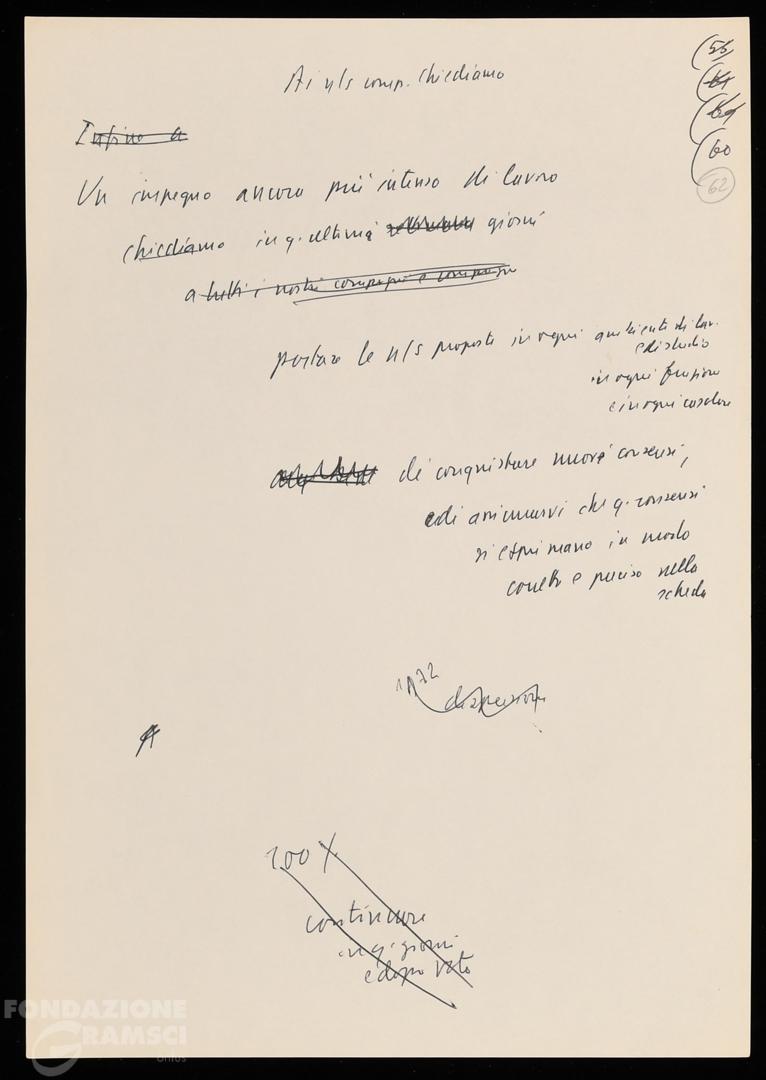 Ai n/s comp. chiediamo
(56
(61
(69
(60
62
Infine a
Un impegno ancora più intenso di lavoro
chiediamo in q. ultimi giorni
a tutti i nostri compagni e compagne
portare le n/s proposte in ogni ambiente di lav.
e di studio
in ogni frazione
e in ogni casolare
di conquistare nuovi consensi,
e di assicurarvi che q. consensi
si esprimano in modo
corretto e preciso nella
scheda
1972
dispersione
200 X
continuare
in q. giorni
e dopo voto
FONDAZIONE
GRAMSCI
onlus